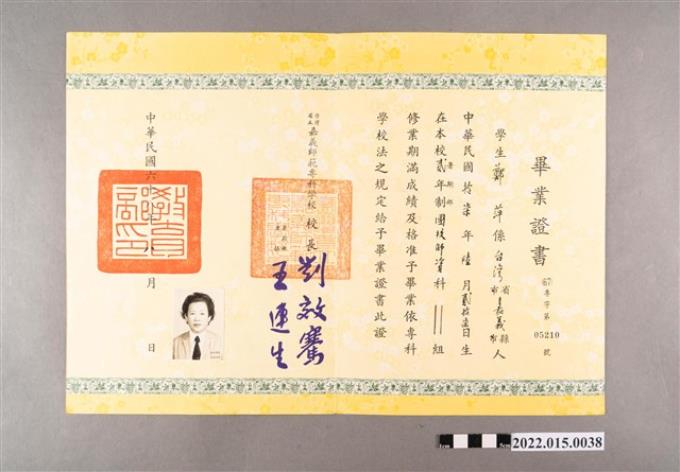 畢業證書
專字第 05210 號
學生鄭 萍係台灣省嘉義縣市人
中華民國拾柒年陸月貳拾壹日生
在本校暑期部貳年制國校師資科 組
修業期滿成績及格准予畢業依專科
學校法之規定給予畢業證書此證
台灣省立嘉義師範專科學校 校長
劉效騫
王連生
中華民國六十 年八月 日
1cm
5cm
2022.015.0038